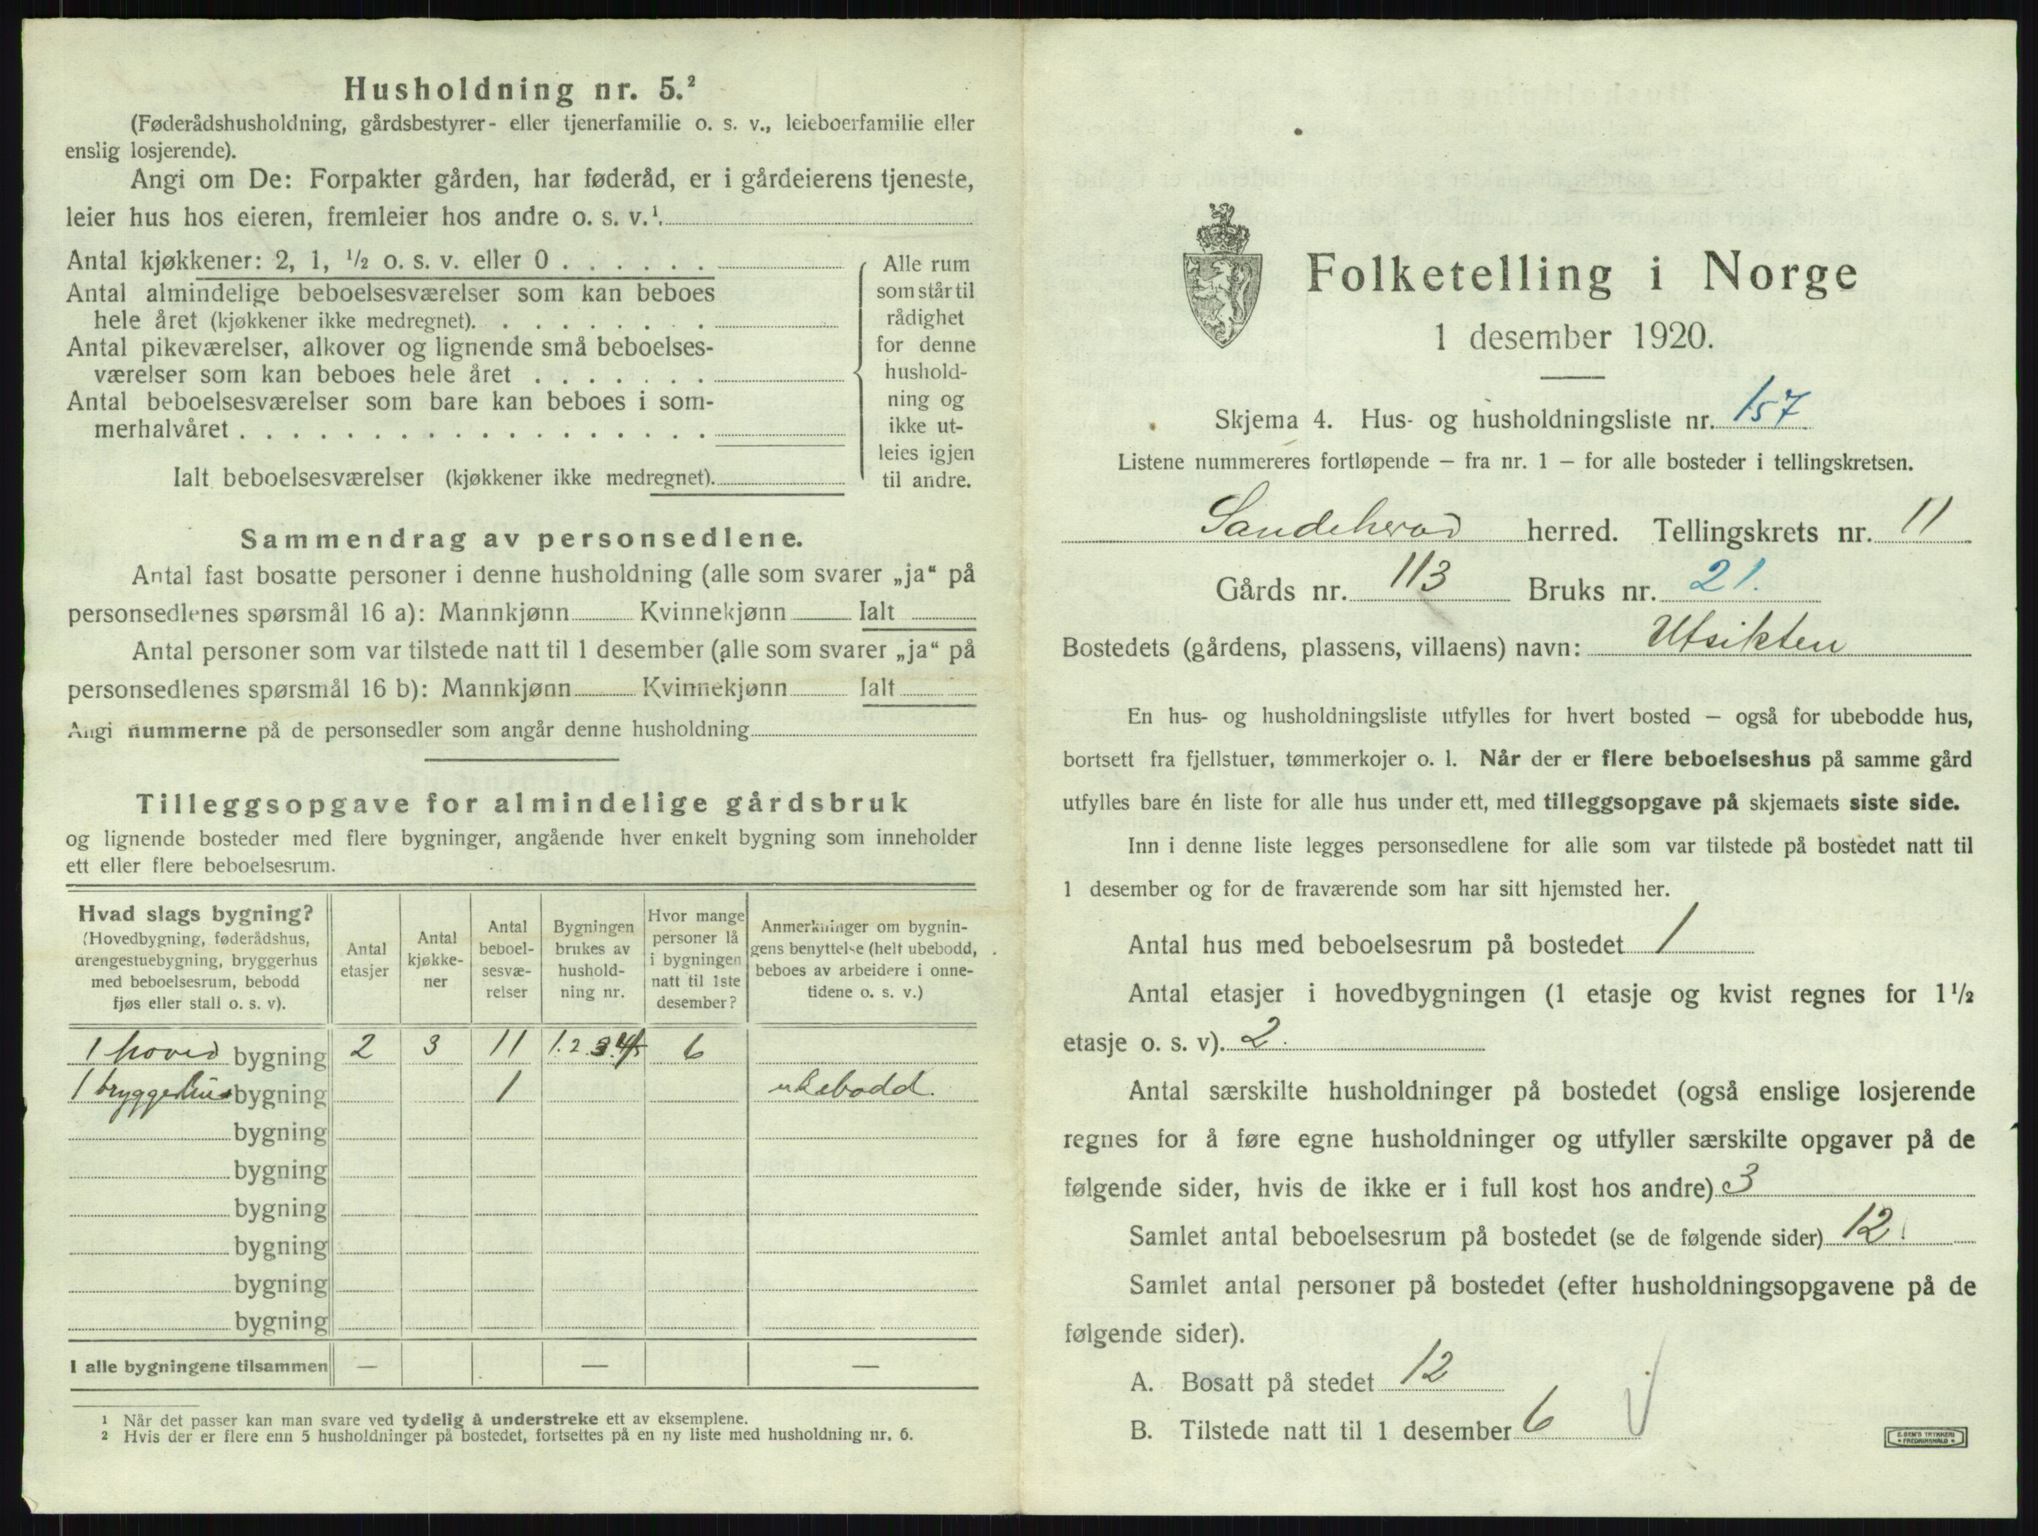 Husholdning nr. 5.²
(Føderådshusholdning, gårdsbestyrer- eller tjenerfamilie o. s. v., leieboerfamilie eller
enslig losjerende).
Angi om De: Forpakter gården, har føderåd, er i gårdeierens tjeneste,
leier hus hos eieren, fremleier hos andre o. s. v.¹.
Antal kjøkkener: 2, 1, ½ o. s. v. eller 0 . . . . . .
Antal almindelige beboelsesværelser som kan beboes
hele året (kjøkkener ikke medregnet). . . . . . . . .
Antal pikeværelser, alkover og lignende små beboelses-
værelser som kan beboes hele året . . . . . . .
Antal beboelsesværelser som bare kan beboes i som-
merhalvåret . . . . . . . . . . . . . . . . . .
Ialt beboelsesværelser (kjøkkener ikke medregnet).
Alle rum
som står til
rådighet
for denne
hushold-
ning og
ikke ut-
leies igjen
til andre.
Sammendrag av personsedlene.
Antal fast bosatte personer i denne husholdning (alle som svarer „ja“ på
personsedlenes spørsmål 16 a): Mannkjønn Kvinnekjønn Ialt
Antal personer som var tilstede natt til 1 desember (alle som svarer „ja“ på
personsedlenes spørsmål 16 b): Mannkjønn Kvinnekjønn Ialt
Angi nummerne på de personsedler som angår denne husholdning
Tilleggsopgave for almindelige gårdsbruk
og lignende bosteder med flere bygninger, angående hver enkelt bygning som inneholder
ett eller flere beboelsesrum.
Hvad slags bygning?
(Hovedbygning, føderådshus,
drengestuebygning, bryggerhus
med beboelsesrum, bebodd
fjøs eller stall o. s. v).
Antal
etasjer
Antal
kjøkke-
ner
Antal
beboel-
sesvæ-
relser
Bygningen
brukes av
hushold-
ning nr.
Hvor mange
personer lå
i bygningen
natt til 1ste
desember?
Anmerkninger om bygnin-
gens benyttelse (helt ubebodd,
beboes av arbeidere i onne-
tidene o. s. v.)
1 hoved bygning 2 3 11 1. 2. 3. 6
1 bryggerhus bygning 1 ubebodd.
bygning
bygning
bygning
bygning
bygning
bygning
I alle bygningene tilsammen — — —
¹ Når det passer kan man svare ved tydelig å understreke ett av eksemplene.
² Hvis der er flere enn 5 husholdninger på bostedet, fortsettes på en ny liste med husholdning nr. 6.
Folketelling i Norge
1 desember 1920.
Skjema 4. Hus- og husholdningsliste nr. 157
Listene nummereres fortløpende – fra nr. 1 – for alle bosteder i tellingskretsen.
Sandeherad herred. Tellingskrets nr. 11
Gårds nr. 113 Bruks nr. 21.
Bostedets (gårdens, plassens, villaens) navn: Utsikten
En hus- og husholdningsliste utfylles for hvert bosted – også for ubebodde hus,
bortsett fra fjellstuer, tømmerkojer o. l. Når der er flere beboelseshus på samme gård
utfylles bare én liste for alle hus under ett, med tilleggsopgave på skjemaets siste side.
Inn i denne liste legges personsedlene for alle som var tilstede på bostedet natt til
1 desember og for de fraværende som har sitt hjemsted her.
Antal hus med beboelsesrum på bostedet 1
Antal etasjer i hovedbygningen (1 etasje og kvist regnes for 1½
etasje o. s. v). 2.
Antal særskilte husholdninger på bostedet (også enslige losjerende
regnes for å føre egne husholdninger og utfyller særskilte opgaver på de
følgende sider, hvis de ikke er i full kost hos andre) 3
Samlet antal beboelsesrum på bostedet (se de følgende sider) 12.
Samlet antal personer på bostedet (efter husholdningsopgavene på de
følgende sider).
A. Bosatt på stedet 12
B. Tilstede natt til 1 desember 6